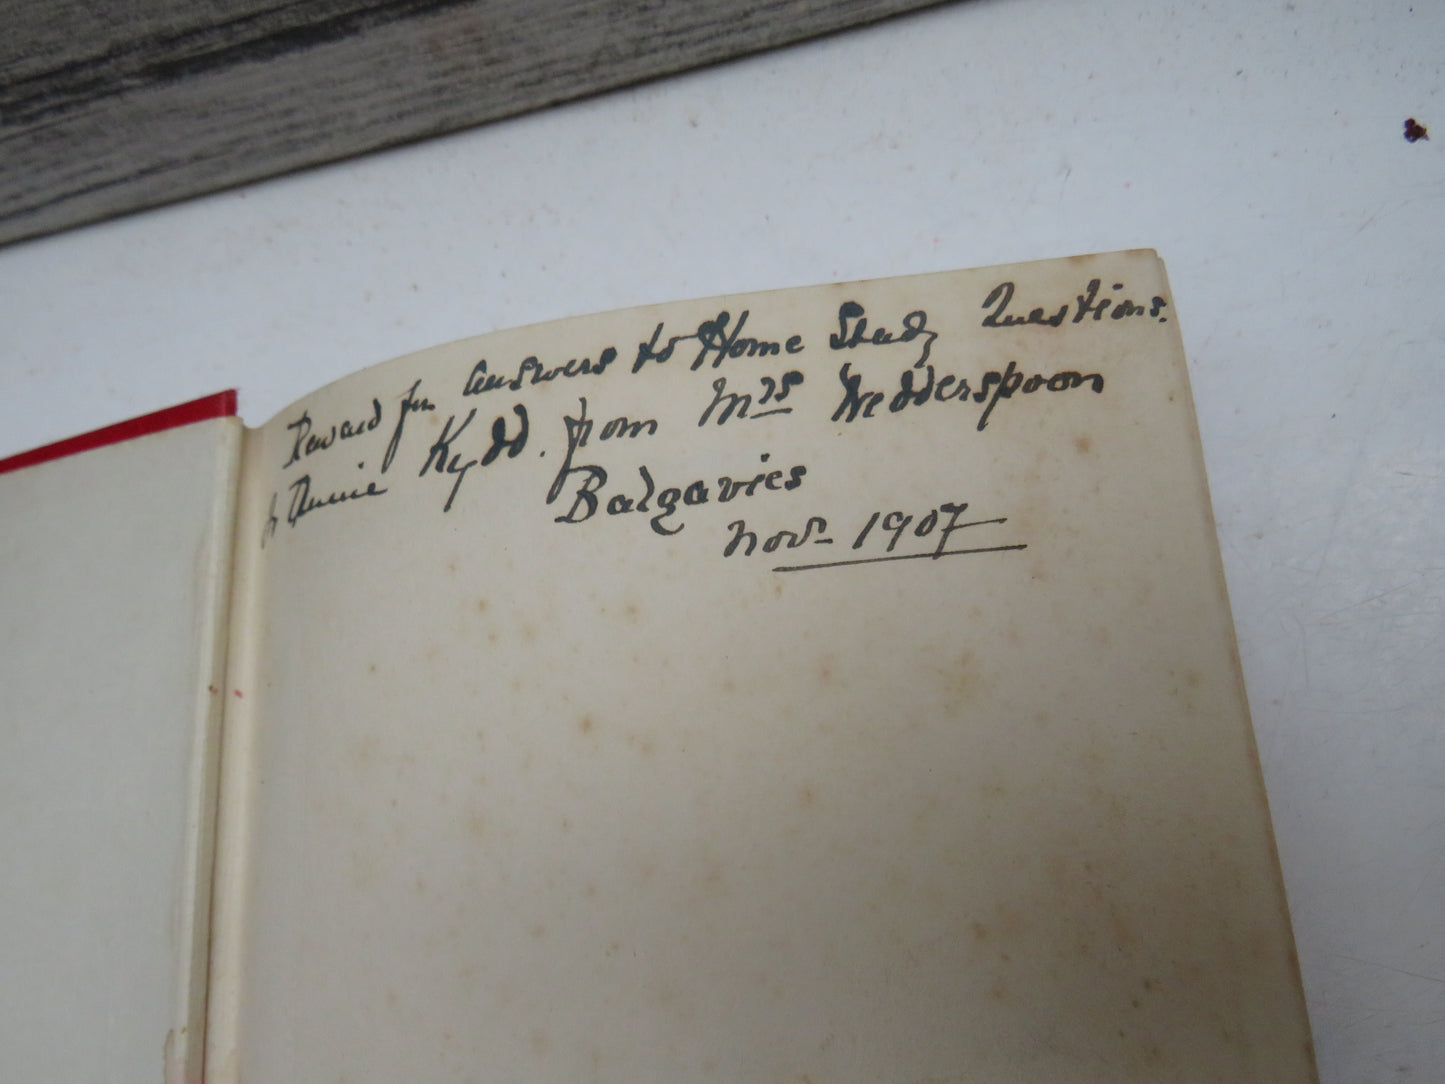 Reward for answers to Home Study Questions.
to Annie Kydd. from Mrs Wedderspoon
Balgavies
Novr 1907